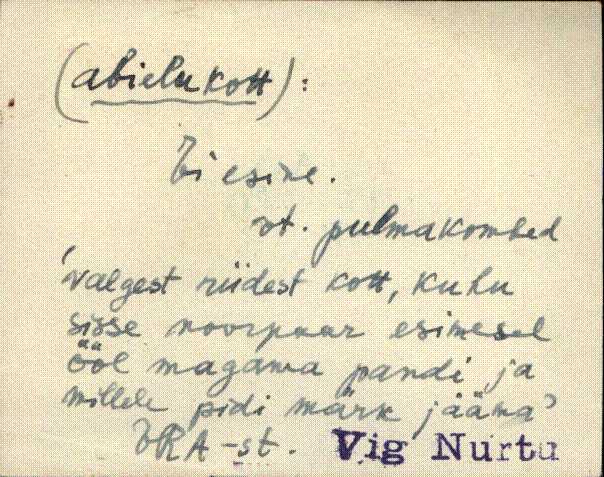 (abielukott):
Ei esine.
vt. pulmakombed
'valgest riidest kott, kuhu
sisse noorpaar esimesel
ööl magama pandi ja
millele pidi märk jääma'
ERA-st. Vig Nurtu